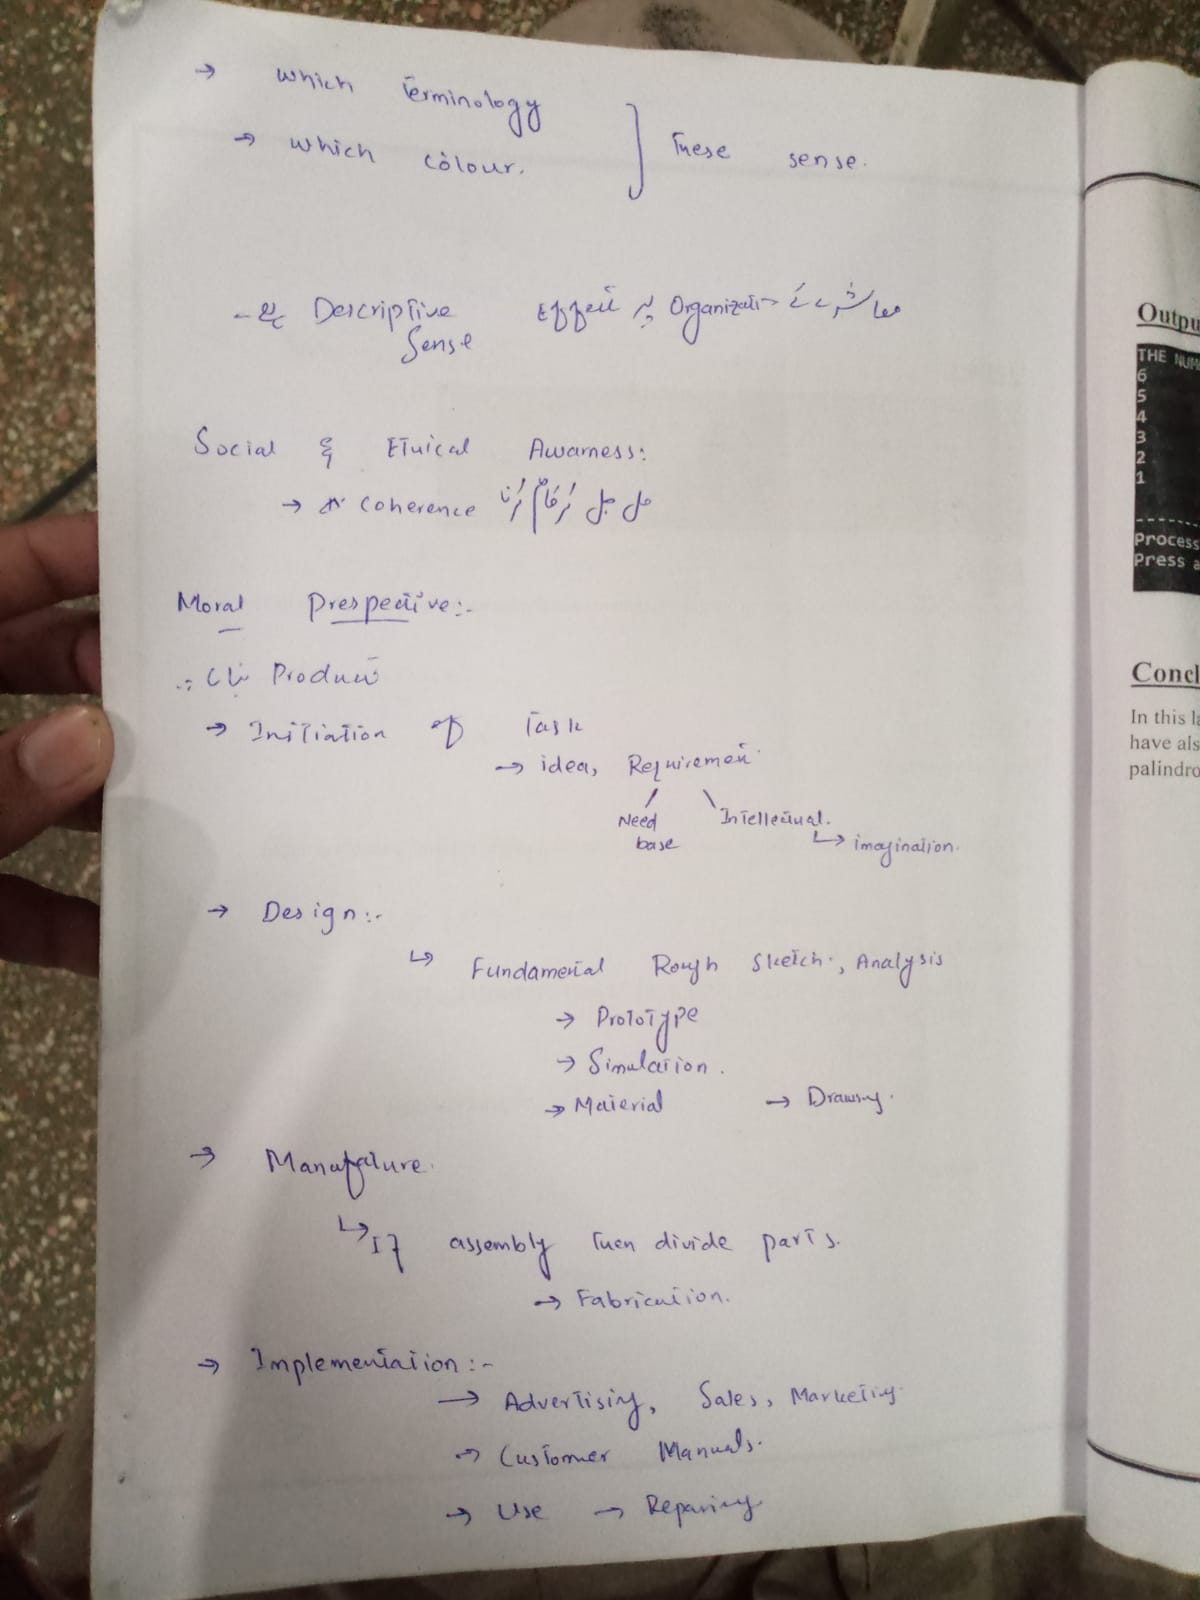 → Which Terminology
→ Which colour. ] These sense.
Descriptive Effect پر Organizati معاشرے
Sense
Social & Ethical Awarness:
→ Coherence مل جل کر کام کرنا
Moral Prespective:-
Product
→ Initiation of Task
→ idea, Requirement
Need Intellectual.
base ↳ imagination.
→ Design:-
↳ Fundamental Rough Sketch, Analysis
→ Prototype
→ Simulation.
→ Material → Drawing.
→ Manufature.
↳ If assembly Then divide parts.
→ Fabrication.
→ Implementation:-
→ Advertising, Sales, Marketing.
→ Customer Manuals.
→ Use → Reparing
Outpu
THE NUM
6
5
4
3
2
1
Process
Press a
Concl
In this la
have als
palindro